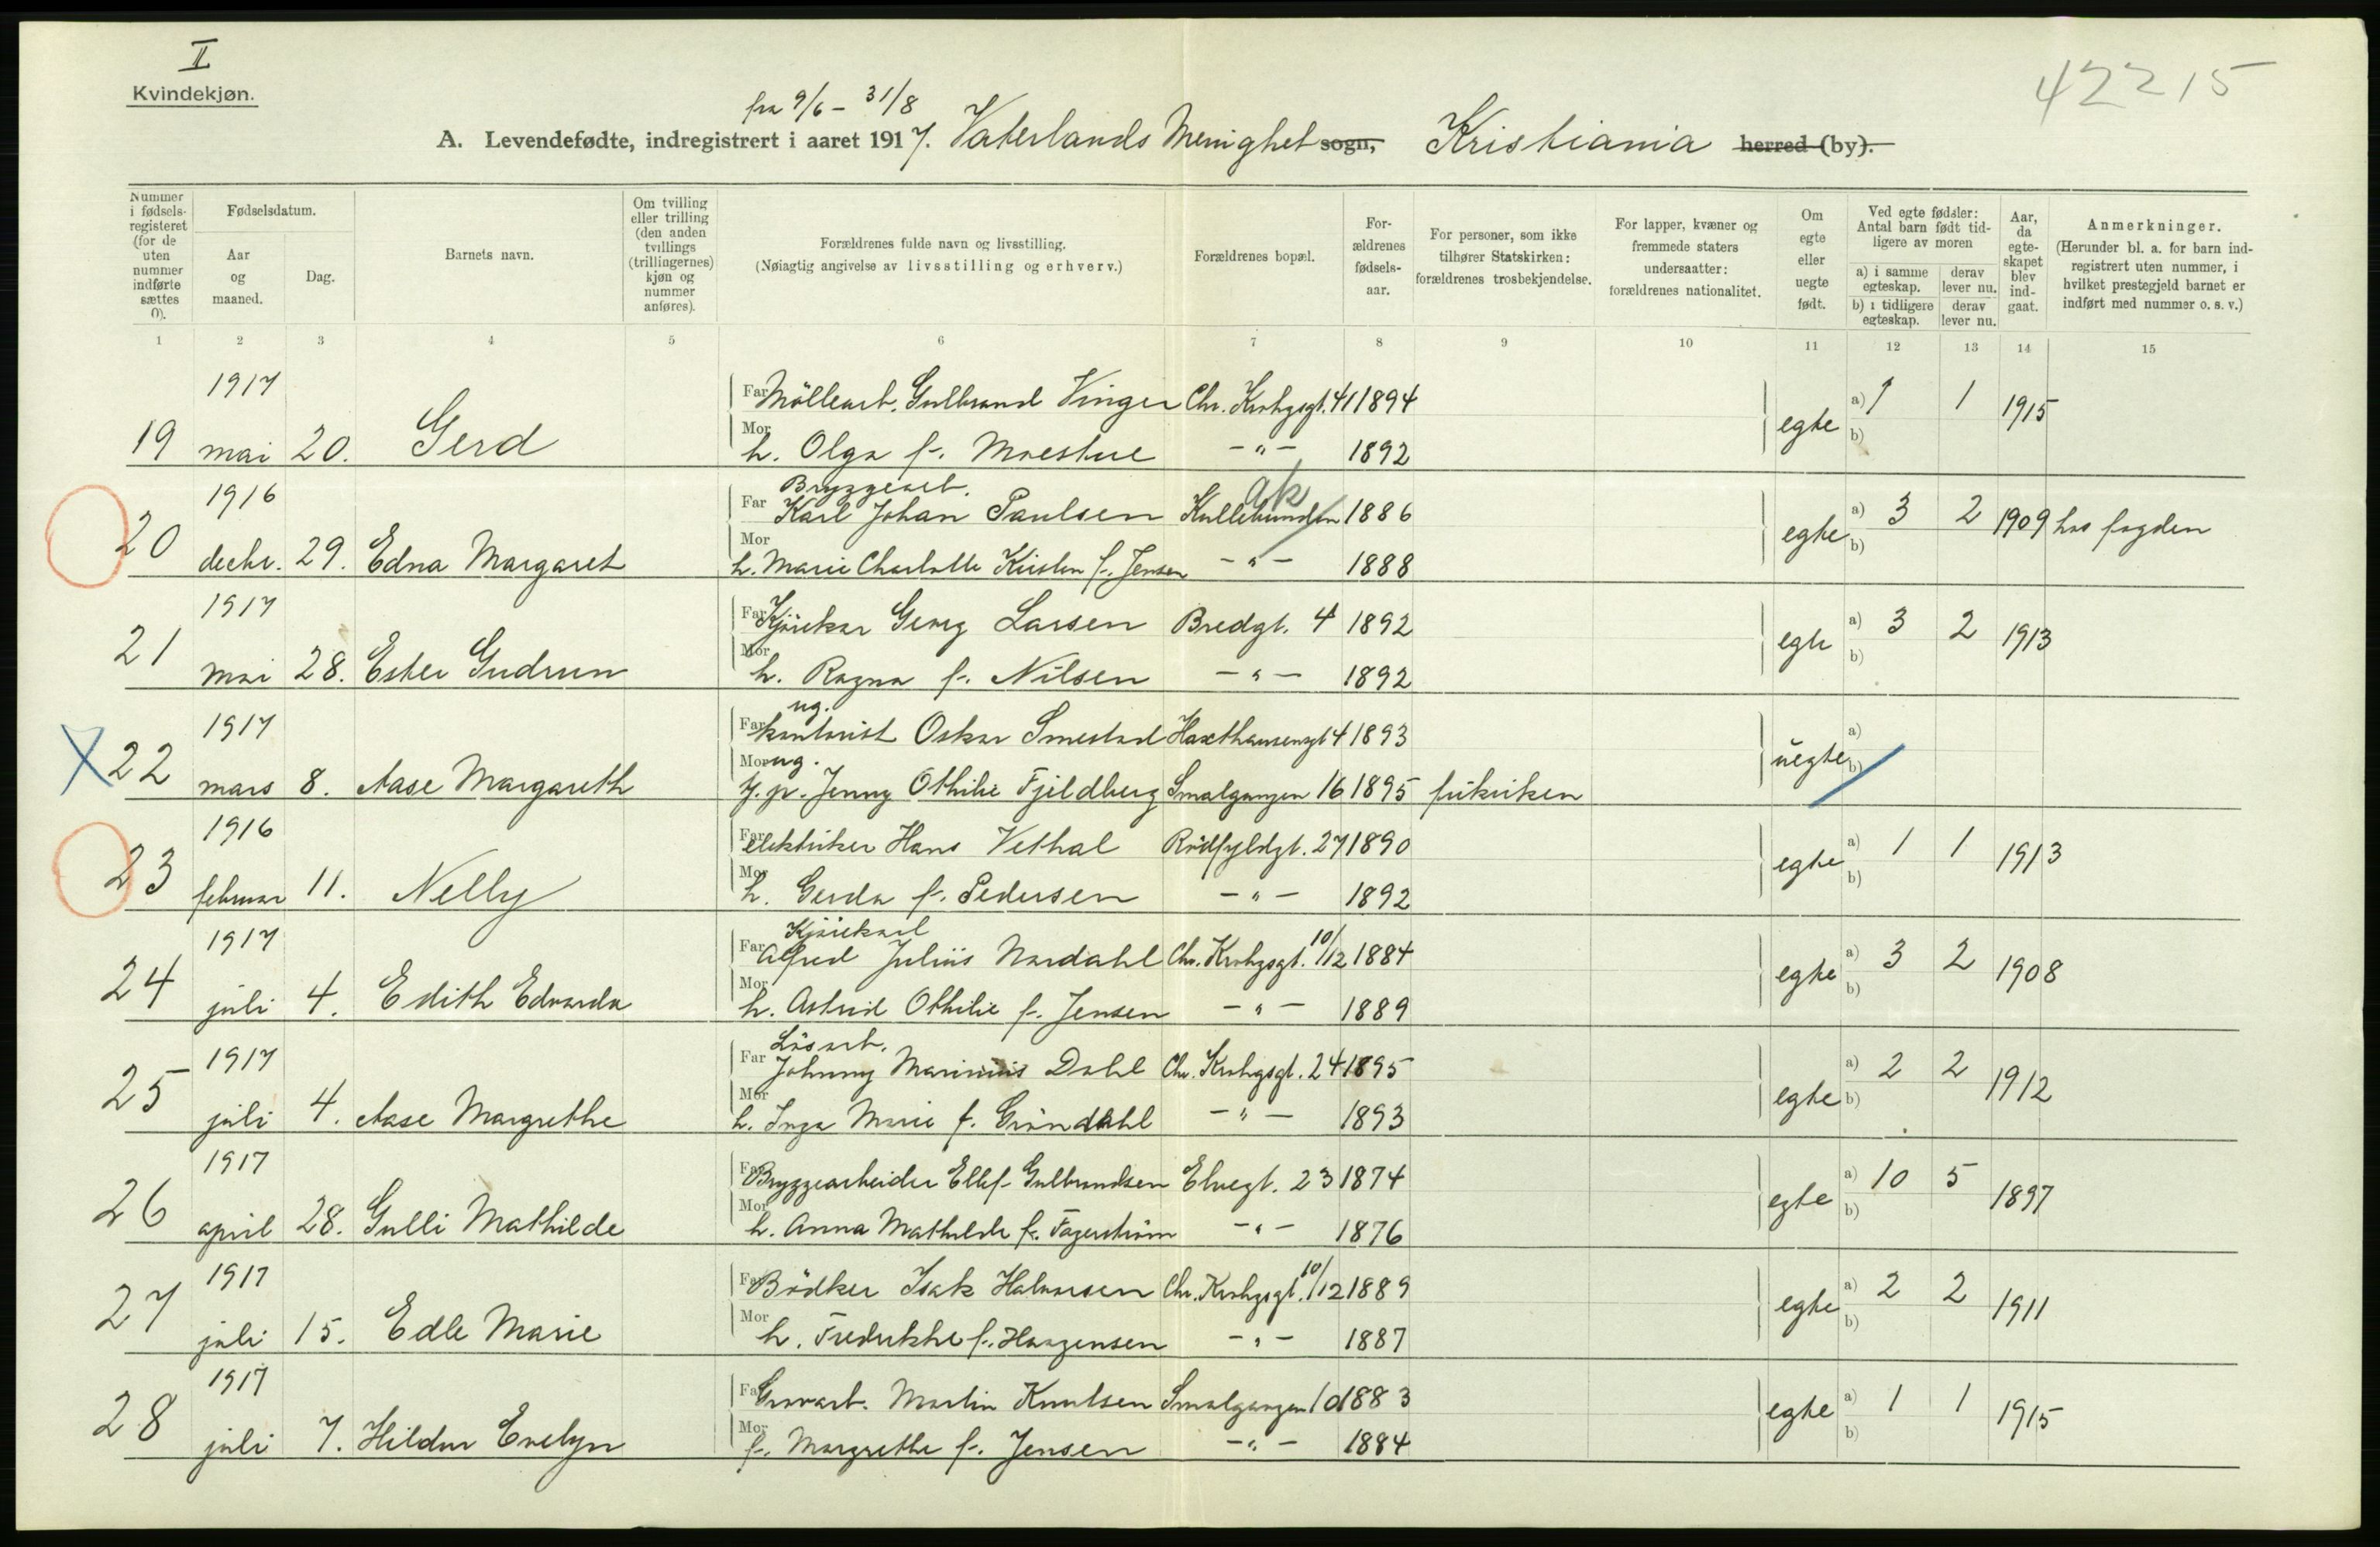 II
Kvindekjøn.
42215
fra 9/6 – 31/8
A. Levendefødte, indregistrert i aaret 1917. Vaterlands Menighet sogn, Kristiania herred (by).
Nummer i fødselsregisteret (for de uten nummer indførte sættes 0).
Fødselsdatum.
Aar og maaned.
Dag.
Barnets navn.
Om tvilling eller trilling (den anden tvillings (trillingernes) kjøn og nummer anføres).
Forældrenes fulde navn og livsstilling.
(Nøiagtig angivelse av livsstilling og erhverv.)
Forældrenes bopæl.
Forældrenes fødselsaar.
For personer, som ikke tilhører Statskirken: forældrenes trosbekjendelse.
For lapper, kvæner og fremmede staters undersaatter: forældrenes nationalitet.
Om egte eller uegte født.
Ved egte fødsler: Antal barn født tidligere av moren
a) i samme egteskap.
derav lever nu.
b) i tidligere egteskap.
derav lever nu.
Aar, da egteskapet blev indgaat.
Anmerkninger.
(Herunder bl. a. for barn indregistrert uten nummer, i hvilket prestegjeld barnet er indført med nummer o. s. v.)
1 2 3 4 5 6 7 8 9 10 11 12 13 14 15
1917 Far Möllearb. Gulbrand Vinger Chr. Krohgsgt. 41 1894 a) 1 1 1915
19 mai 20. Gerd Mor h. Olga f. Moestue – " – 1892 egte b)
1916 Bryggearb. ak
Far Karl Johan Paulsen Kullebunden 1886 a) 3 2 1909 hos fogden
20 decbr. 29. Edna Margaret Mor h. Marie Charlotte Kirsten f. Jensen – " – 1888 egte b)
1917 Far Kjörekar Georg Larsen Bredgt. 4 1892 a) 3 2 1913
21 mai 28. Ester Gudrun Mor h. Ragna f. Nilsen – " – 1892 egte b)
1917 ug.
Far kontorist Oskar Smestad Haxthausensgt 4 1893 a)
X 22 mars 8. Aase Margareth Mor ug. Jenny Othilie Fjeldberg Smalgangen 16 1895 frikirken uegte b)
1916 Far elektriker Hans Vethal Rödfyldgt. 27 1890 a) 1 1 1913
23 februar 11. Nelly Mor h. Gerda f. Pedersen – " – 1892 egte b)
1917 Kjörekarl
Far Alfred Julius Nordahl Chr. Krohgsgt. 10/12 1884 a) 3 2 1908
24 juli 4. Edith Edvarda Mor h. Astrid Othilie f. Jensen – " – 1889 egte b)
1917 Lösarb.
Far Johnny Marinius Dahl Chr. Krohgsgt. 24 1895 a) 2 2 1912
25 juli 4. Aase Margrethe Mor h. Inga Marie f. Gröndahl – " – 1893 egte b)
1917 Far Bryggearbeider Ellef Gulbrandsen Elvegt. 23 1874 a) 10 5 1897
26 april 28. Gulli Mathilde Mor h. Anna Mathilde f. Fagerström – " – 1876 egte b)
1917 Far Bödker Isak Halvorsen Chr. Krohgsgt. 10/12 1889 a) 2 2 1911
27 juli 15. Edle Marie Mor h. Fredrikke f. Haagensen – " – 1887 egte b)
1917 Far Grovarb. Martin Knutsen Smalgangen 10 1883 a) 1 1 1915
28 juli 7. Hildur Evelyn Mor f. Margrethe f. Jensen – " – 1884 egte b)